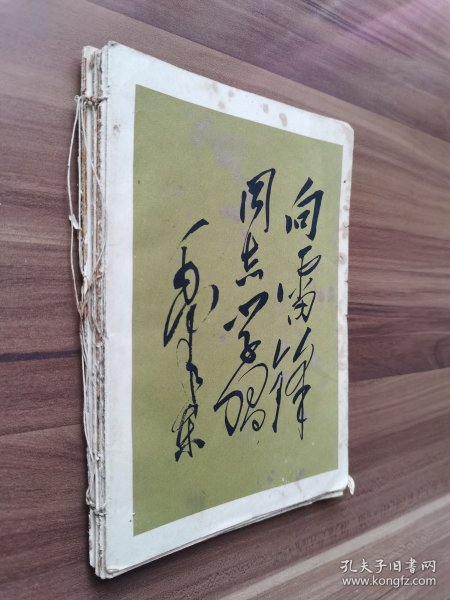 向雷锋
同志学习
毛泽东
孔夫子旧书网
www.kongfz.com